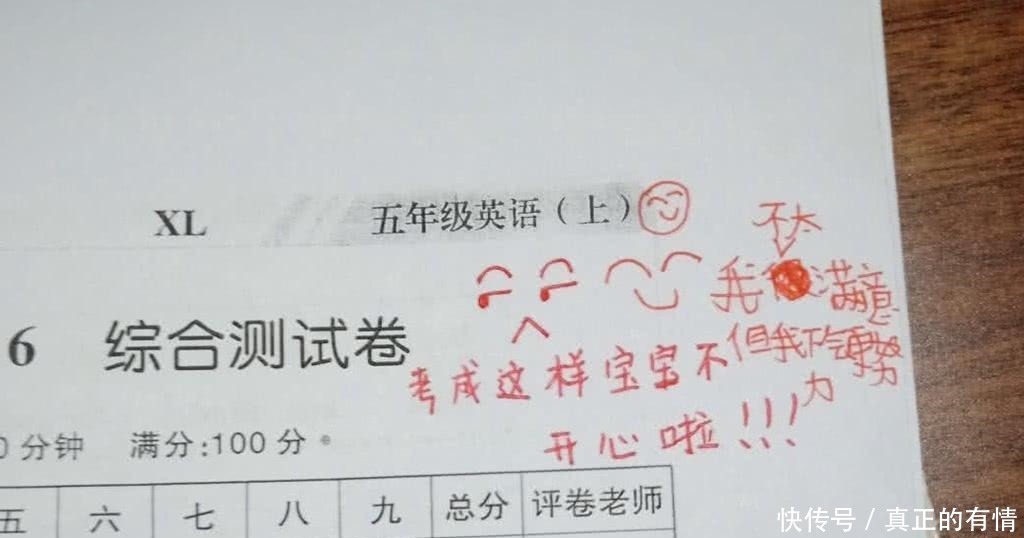 XL 五年级英语(上)
不太
我 满意
6 综合测试卷
但我下
考成这样宝宝不
努力
开心啦!!!
0分钟 满分:100分
五 六 七 八 九 总分 评卷老师
快传号 / 真正的有情